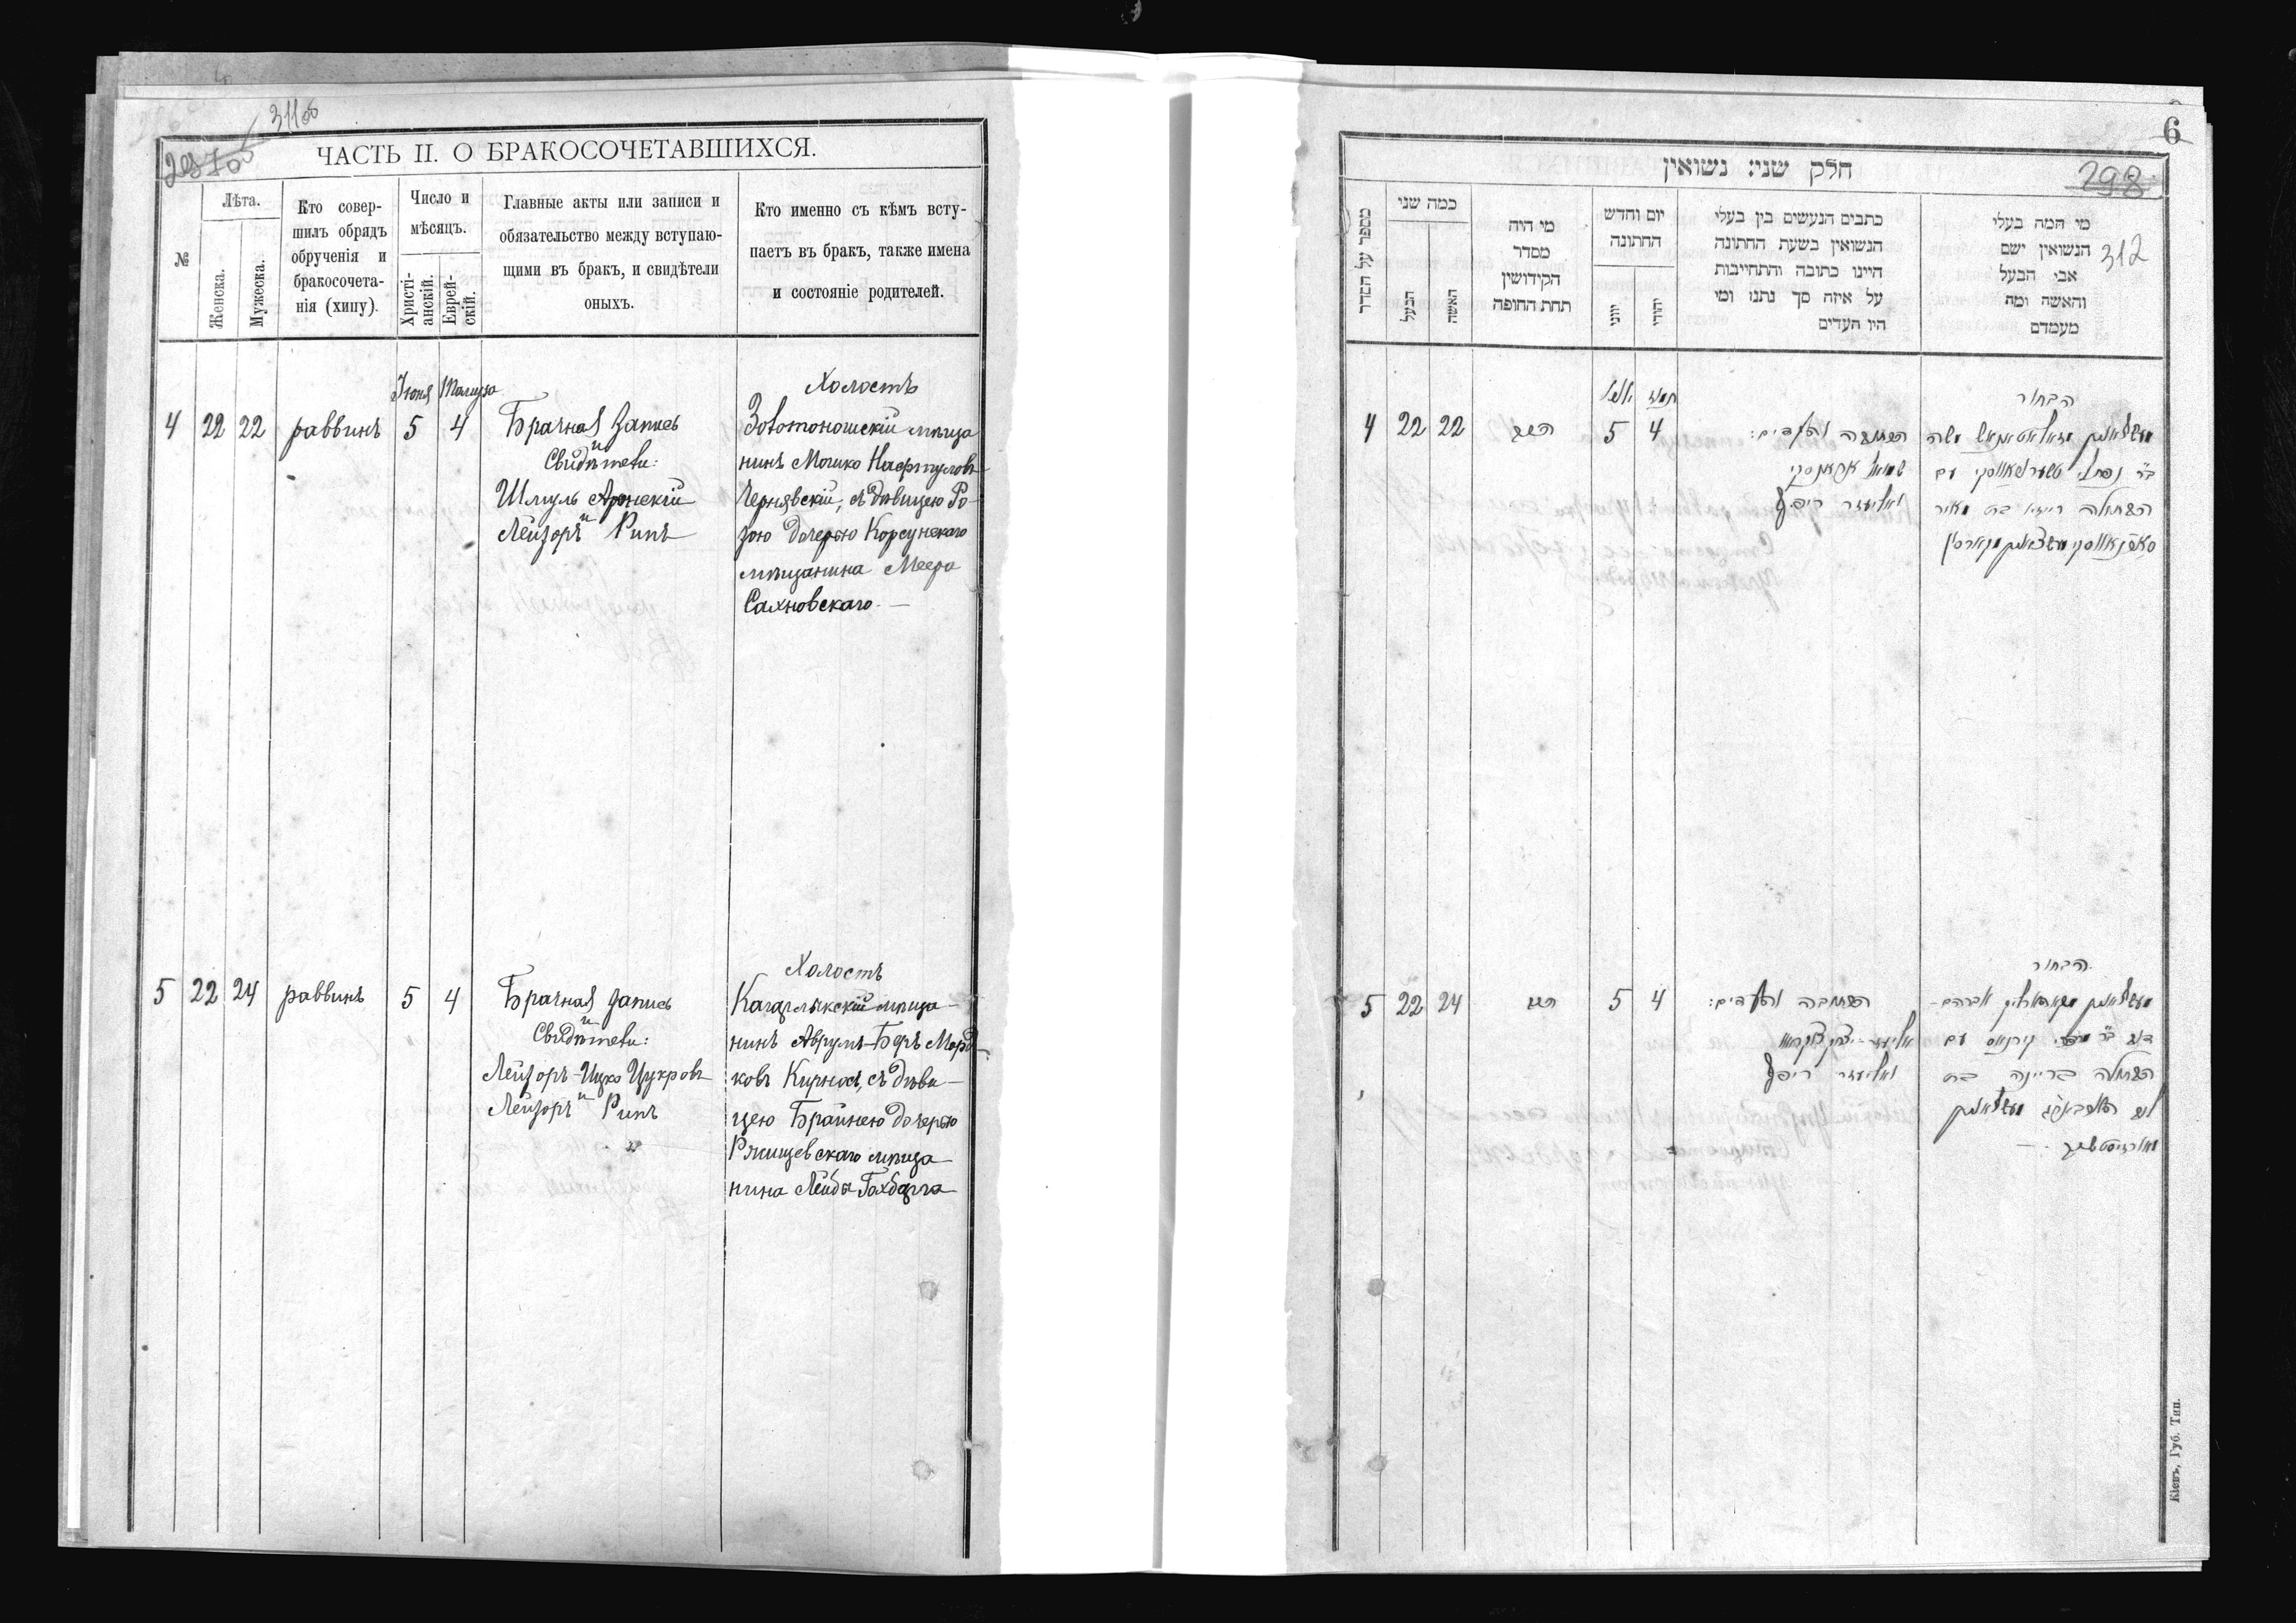 311 об
297 об
ЧАСТЬ II. О БРАКОСОЧЕТАВШИХСЯ.
№
Лѣта.
Женска.
Мужеска.
Кто совер-
шилъ обрядъ
обрученія и
бракосочета-
нія (хипу).
Число и
мѣсяцъ.
Христі-
анскій.
Еврей-
скій.
Главные акты или записи и
обязательство между вступаю-
щими въ бракъ, и свидѣтели
оныхъ.
Кто именно съ кѣмъ всту-
паетъ въ бракъ, также имена
и состояніе родителей.
Іюня
4 22 22 раввинъ 5 4
Брачная запись
и
Свидѣтели:
Шмуль
и
Лейзоръ Рипъ
Холостъ
Золотоношскій мѣща
нинъ Мошко Нафтулов
Чернявскій, съ дѣвицею Ро-
зою дочерью Корсунскаго
мѣщанина Меера
Сахновскаго. —
5 22 24 раввинъ 5 4
Брачная запись
и
Свидѣтели:
Лейзоръ-Ицко Цукровъ
и
Лейзоръ Рипъ
Холостъ
Кагарлыкскій мѣща-
нинъ Аврумъ-Беръ Морд-
ковъ Кирносъ, съ дѣви-
цею Брайнею дочерью
Ржищевскаго мѣща
нина Лейбы
6
298
312
חלק שני: נשואין
מספר על הסדר
כמה שני
הבעל
האשה
מי היה
מסדר
הקידושין
תחת החופה
יום וחדש
החתונה
יווני
יהודי
כתבים הנעשים בין בעלי
הנשואין בשעת החתונה
היינו כתובה והתחייבות
על איזה סך נתנו ומי
היו העדים
מי המה בעלי
הנשואין ישם
אבי הבעל
והאשה ומה
מעמדם
תמוז
4 22 22 הרב 5 4
הכתובה והעדים:
שמואל
ואליעזר ריפ
הבחור
משה
ב״ר נפתלי עם
הבתולה רייזא בת מאיר
5 22 24 הרב 5 4
הכתובה והעדים:
אליעזר-יצחק
ואליעזר ריפ
הבחור
אברהם-
קירנאס עם
הבתולה בריינה בת
Кіевъ, Губ. Тип.